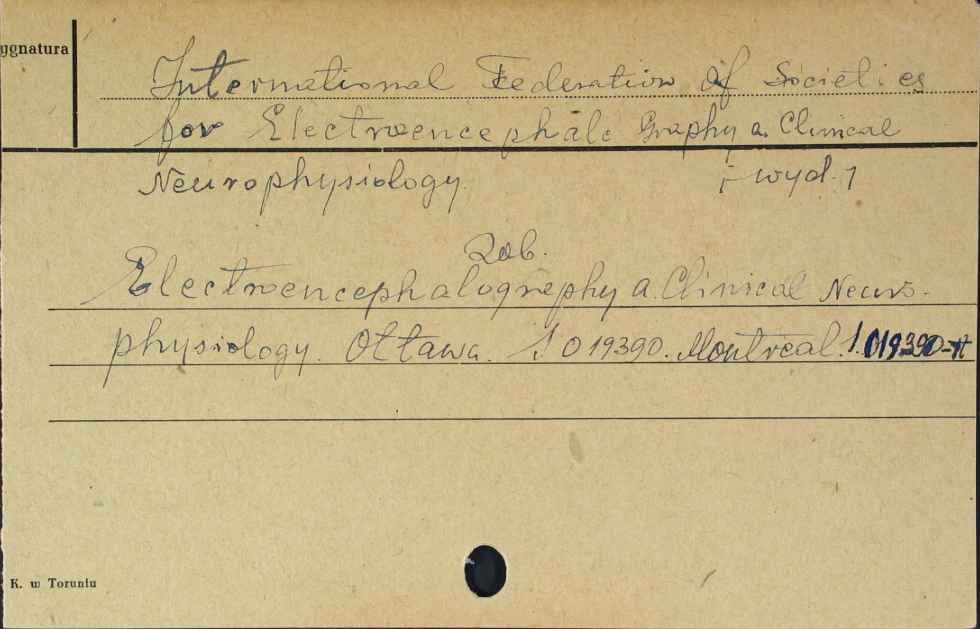 ygnatura
International Federation of Societies
for Electroencephalo Graphy a. Clinical
Neurophysiology. ; wyd. 1
Zob.
Electroencephalography a. Clinical Neuro-
physiology. Ottawa. 1 019390. Montreal. 1. 019390-tt
K. w Toruniu